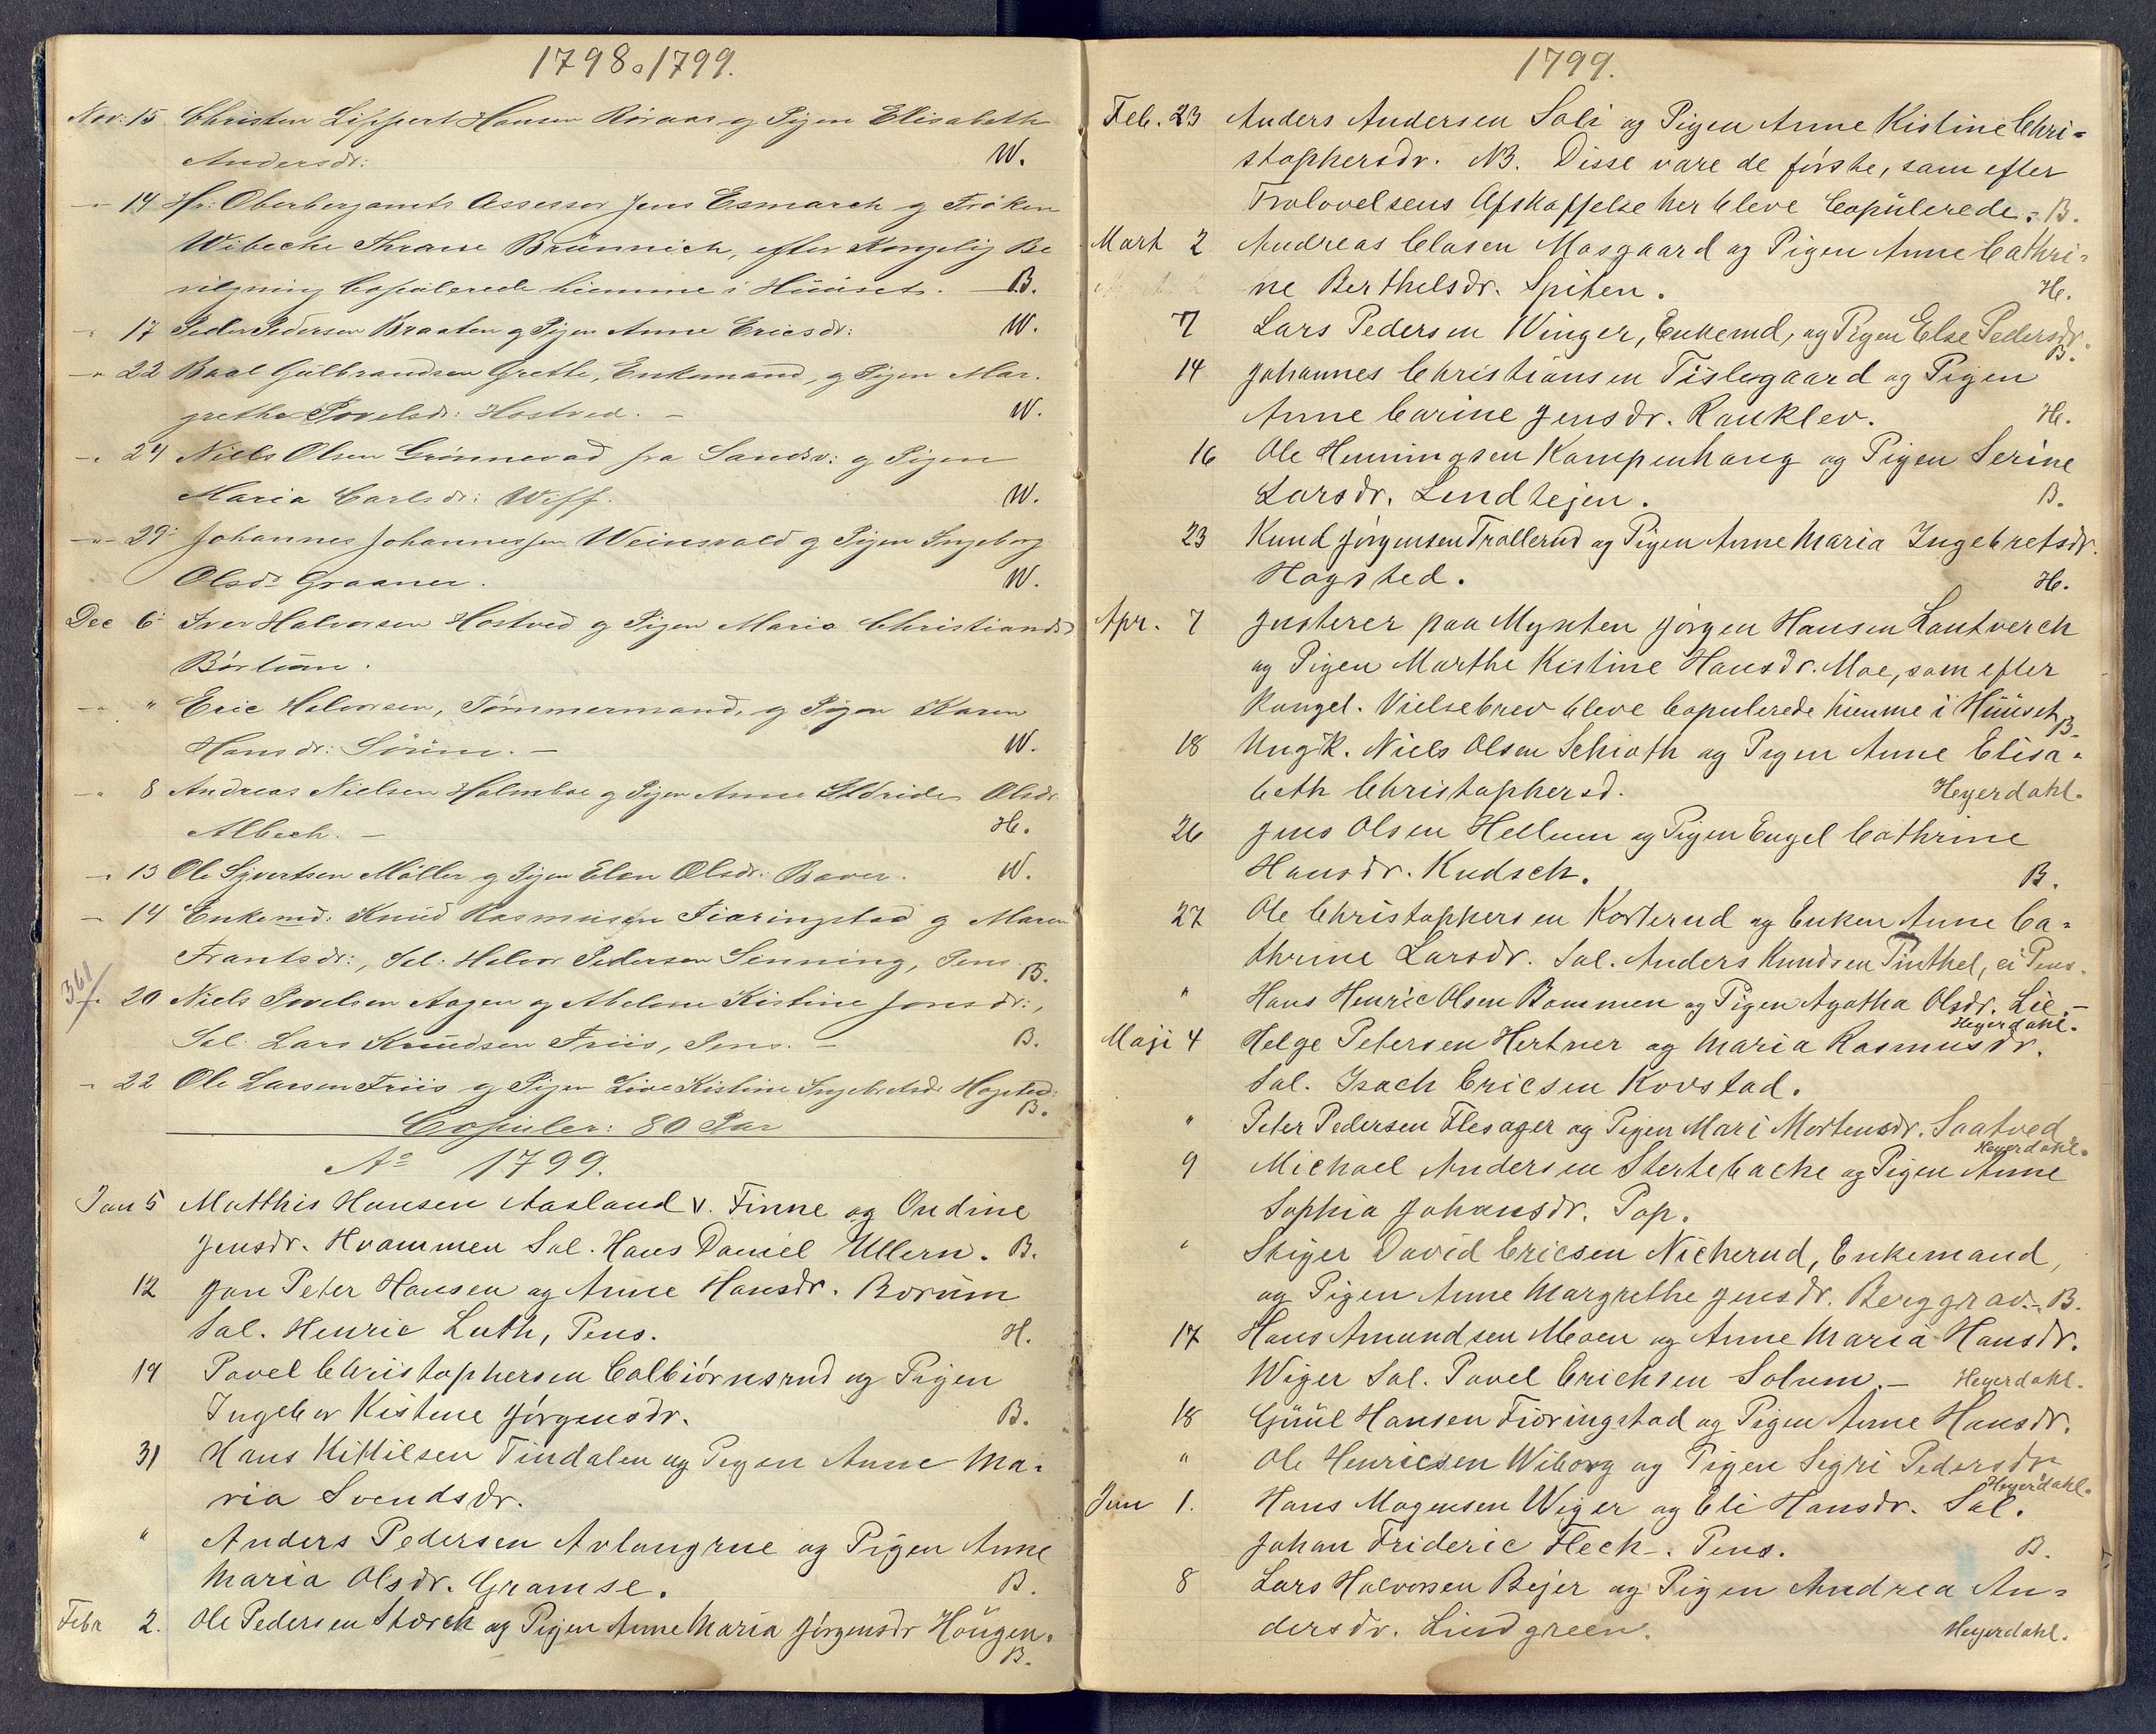 1798 o 1799.
Nov: 15 Christen Lippert Hansen Röraas og Pigen Elisabeth
Andersdr: W.
-"- 14 Hr: Oberbergamts Assessor Jens Esmarch og Fröken
Wibecke Thrane Brünnich, efter Kongelig Be
vilgning Copulerede hiemme i Hüüset. B.
" 17 Peder Pedersen Braaten og Pigen Anne Ericsdr: W.
-"- 22 Gulbrandsen Grette, Enkemand, og Pigen Mar-
grethe Povelsdr: Hostved. - W.
-"- 24 Niels Olsen Grönnevad fra Sandsv: og Pigen
Maria Carlsdr: Wiff. W.
-"- 29 Johannes Johannessen Weinsvold og Pigen Ingeborg
Olsdr Graaner. W.
Dec 6 Iver Halvorsen Hostved og Pigen Maria Christiansdr
-"- " Eric Halvorsen, Tømmermand, og Pigen Karen
Hansdr: Sörum. - W.
-"- 8 Andreas Nielsen Holmboe og Pigen Anne Olsdr
Albech. - H.
-"- 13 Ole Syvertsen Möller og Pigen Elen Olsdr: Baver. W.
- 14 Enkemd: Knud Rasmussen Fiæringstad og Maren
Frantsdr:, Sal: Halvor Pedersen Senning, Pens. B.
361
-"- 20 Niels Povelsen Aagen og Abelone Kistine Jonsdr:,
Sal: Lars Knudsen Friis, Pens. - B.
-"- 22 Ole Larsen Friis og Pigen Live Kistine Ingebretsdr Hogsted:
B.
Copuler: 80 Par
Ao 1799.
Jan 5 Matthis Hansen Aasland v. Finne og Ondine
Jensdr. Hvammen Sal. Hans Daniel Ullern. B.
12 Jon Peter Hansen og Anne Hansdr. Borüm
Sal. Henric Luth, Pens. H.
19 Povel Christophersen Colbiörnsrud og Pigen
Ingebor Kistine Jörgensdr. B.
31 Hans Kittilsen Tindalen og Pigen Anne Ma-
ria Svendsdr.
" Anders Pedersen Avlangrue og Pigen Anne
Maria Olsdr. Gramse. B.
Febr 2. Ole Pedersen Storck og Pigen Anne Maria Jörgensdr Höugen.
B.
1799.
Feb. 23 Anders Andersen Soli og Pigen Anne Kistine Chri-
stophersdr. NB. Disse vare de förste, som efter
Trolovelsens Afskaffelse her bleve Copulerede. - B.
Mart 2 Andreas Clasen Mosgaard og Pigen Anne Cathri-
ne Berthelsdr. Spiten. H.
7 Lars Pedersen Winger, Enkemd, og Pigen Else Pedersdr.
B.
14 Johannes Christiansen Tislegaard og Pigen
Anne Carine Jensdr. Rauklev. H.
16 Ole Henningsen Kampenhaug og Pigen Serine
Larsdr. Lendtejen. B.
23 Knud Jörgensen Trollerud og Pigen Anne Maria Ingebretsdr.
Hogsted. H.
Apr. 7 Justerer paa Mynten Jörgen Hansen Lantverch
og Pigen Marthe Kistine Hansdr. Moe, som efter
Kongel. Vielsebrev bleve Copulerede hiemme i Hüüset
B.
18 UngK. Niels Olsen Schioth og Pigen Anne Elisa-
beth Christophersd. Heyerdahl.
26 Jens Olsen Hellum og Pigen Engel Cathrine
Hansdr. Kudsch. B.
27 Ole Christophersen Korterud og Enken Anne Ca-
thrine Larsdr. Sal. Anders Knudsen Pinthel, ei Pens.
" Hans Henric Olsen Bommen og Pigen Agatha Olsdr. Lie. -
Heyerdahl.
Maji 4 Helge Petersen Hertner og Maria Rasmusdr.
Sal. Isach Ericsen Korstad.
" Peter Pedersen Flesager og Pigen Mari Mortensdr. Saatved
Heyerdahl.
9 Michael Andersen Stertebacke og Pigen Anne
Sophia Johansdr. Pop.
" Stiger David Ericsen Nicherud, Enkemand,
og Pigen Anne Margrethe Jensdr. Berggrav. - B.
17 Hans Amundsen Moen og Anne Maria Hansdr.
Wiger Sal. Povel Erichsen Solum. - Heyerdahl.
18 Güül Hansen Fiöringstad og Pigen Anne Hansdr.
" Ole Henricsen Wiborg og Pigen Sigri Pedersdr
Heyerdahl.
Jun 1. Hans Mogensen Weger og Eli Hansdr. Sal.
Johan Frideric Fleck -. Pens. B.
8 Lars Halvorsen Bejer og Pigen Andrea An-
dersdr. Lindgreen. Heyerdahl.